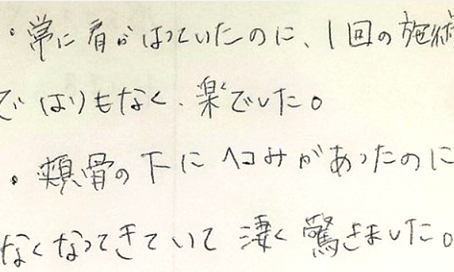 ・常に肩がはっていたのに、1回の施術
ではりもなく、楽でした。
・頬骨の下にヘコみがあったのに
なくなってきていて凄く驚きました。